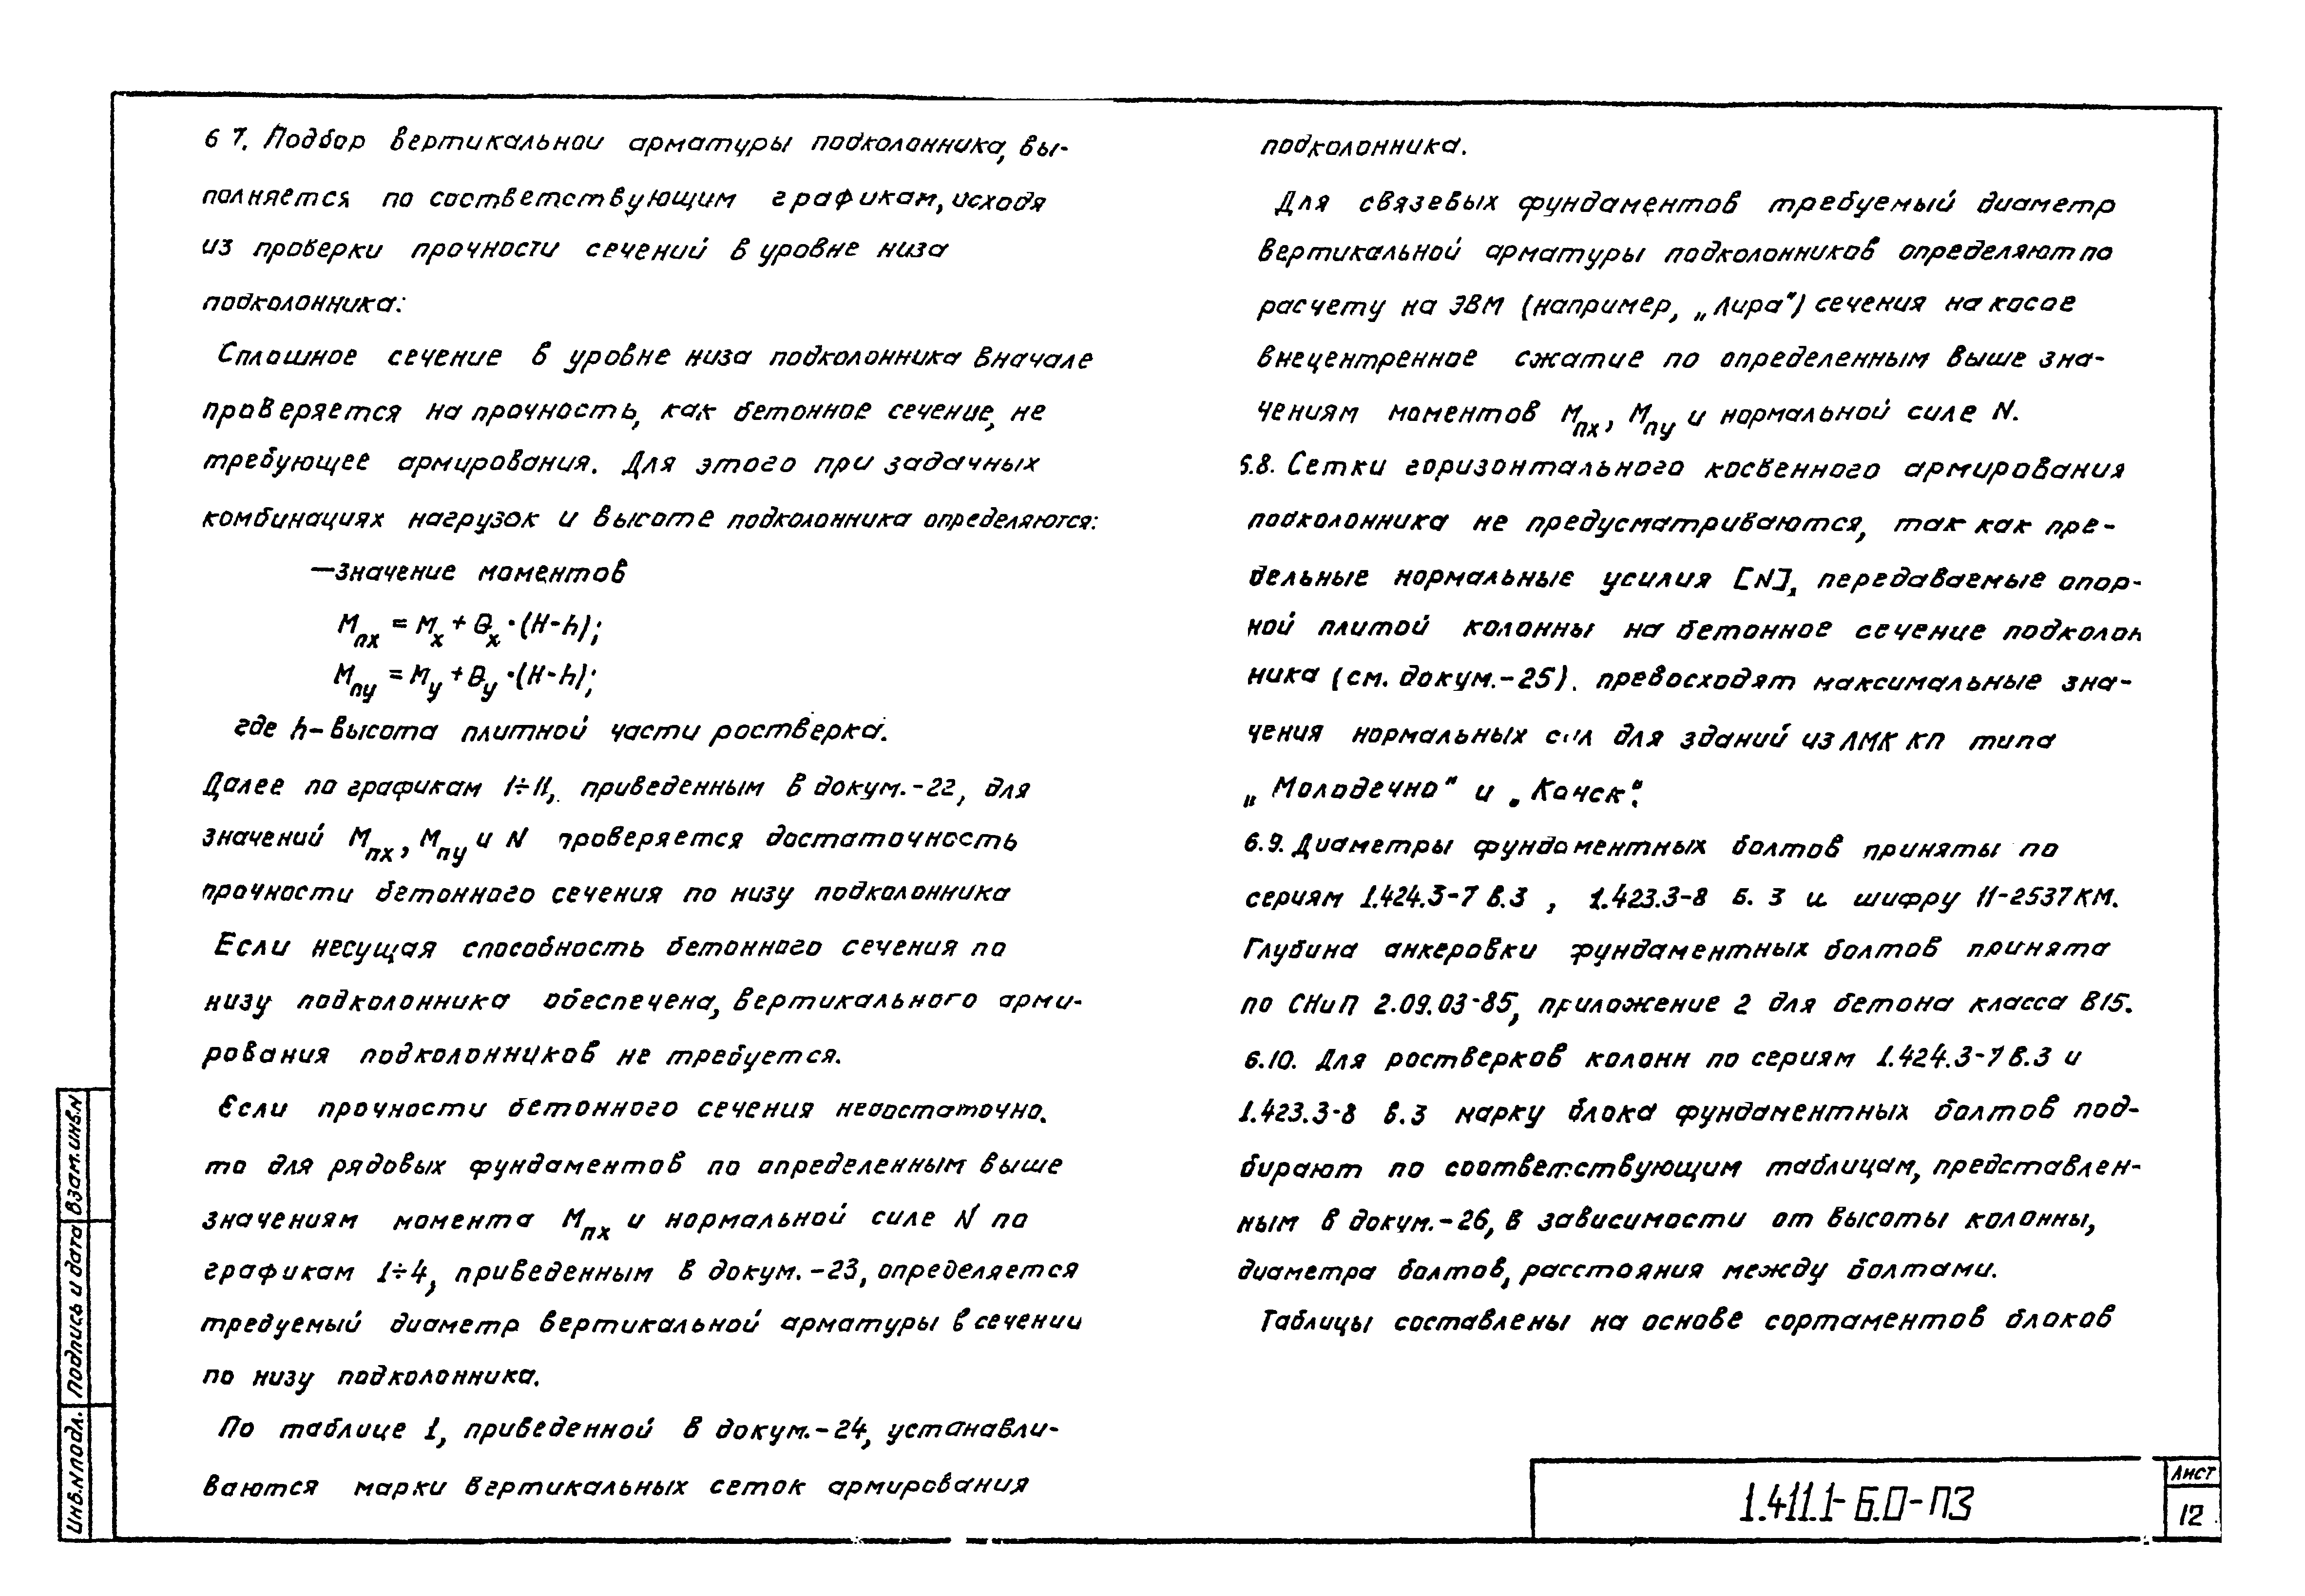 6 7. Подбор вертикальной арматуры подколонника, вы-
полняется по соответствующим графикам, исходя
из проверки прочности сечений в уровне низа
подколонника:
Сплошное сечение в уровне низа подколонника вначале
проверяется на прочность, как бетонное сечение, не
требующее армирования. Для этого при задачных
комбинациях нагрузок и высоте подколонника определяются:
—значение моментов
Mпх = Mх + Qх · (H-h);
Mпу = Mу + Qу · (H-h);
где h-высота плитной части ростверка.
Далее по графикам 1÷11, приведенным в докум.-22, для
значений Mпх, Mпу и N проверяется достаточность
прочности бетонного сечения по низу подколонника
Если несущая способность бетонного сечения по
низу подколонника обеспечена, вертикального арми-
рования подколонников не требуется.
Если прочности бетонного сечения недостаточно,
то для рядовых фундаментов по определенным выше
значениям момента Mпх и нормальной силе N по
графикам 1÷4, приведенным в докум.-23, определяется
требуемый диаметр вертикальной арматуры в сечении
по низу подколонника.
По таблице 1, приведенной в докум.-24, устанавли-
ваются марки вертикальных сеток армирования
подколонника.
Для связевых фундаментов требуемый диаметр
вертикальной арматуры подколонников определяют по
расчету на ЭВМ (например, „Лира") сечения на косое
внецентренное сжатие по определенным выше зна-
чениям моментов Mпх, Mпу и нормальной силе N.
6.8. Сетки горизонтального косвенного армирования
подколонника не предусматриваются, так как пре-
дельные нормальные усилия [N], передаваемые опор-
ной плитой колонны на бетонное сечение подколон
ника (см. докум.-25). превосходят максимальные зна-
чения нормальных сил для зданий из ЛМК КП типа
„Молодечно" и „Канск".
6.9. Диаметры фундаментных болтов приняты по
сериям 1.424.3-7 в.3 , 1.423.3-8 в. 3 и шифру 11-2537КМ.
Глубина анкеровки фундаментных болтов принята
по СНиП 2.09.03-85, приложение 2 для бетона класса В15.
6.10. Для ростверков колонн по сериям 1.424.3-7 в.3 и
1.423.3-8 в.3 марку блока фундаментных болтов под-
бирают по соответствующим таблицам, представлен-
ным в докум.-26, в зависимости от высоты колонны,
диаметра болтов, расстояния между болтами.
Таблицы составлены на основе сортаментов блоков
Инв.N подл. Подпись и дата Взам.инв.N
1.411.1-6.0-ПЗ
Лист
12